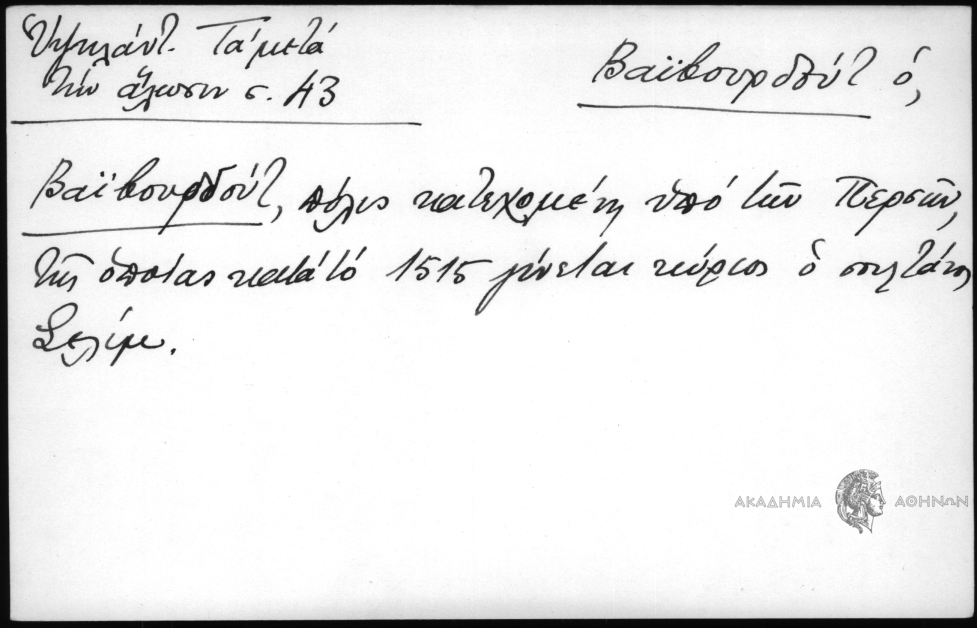 Ὑψηλάντ. Τά μετά
τήν ἅλωσιν σ. 43
Βαϊβουρδούτ ὁ,
Βαϊβουρδούτ, πόλις κατεχομένη ὑπό τῶν Περσῶν,
τῆς ὁποίας κατά τό 1515 γίνεται κύριος ὁ σουλτάνος
Σελίμ.
ΑΚΑΔΗΜΙΑ ΑΘΗΝΩΝ